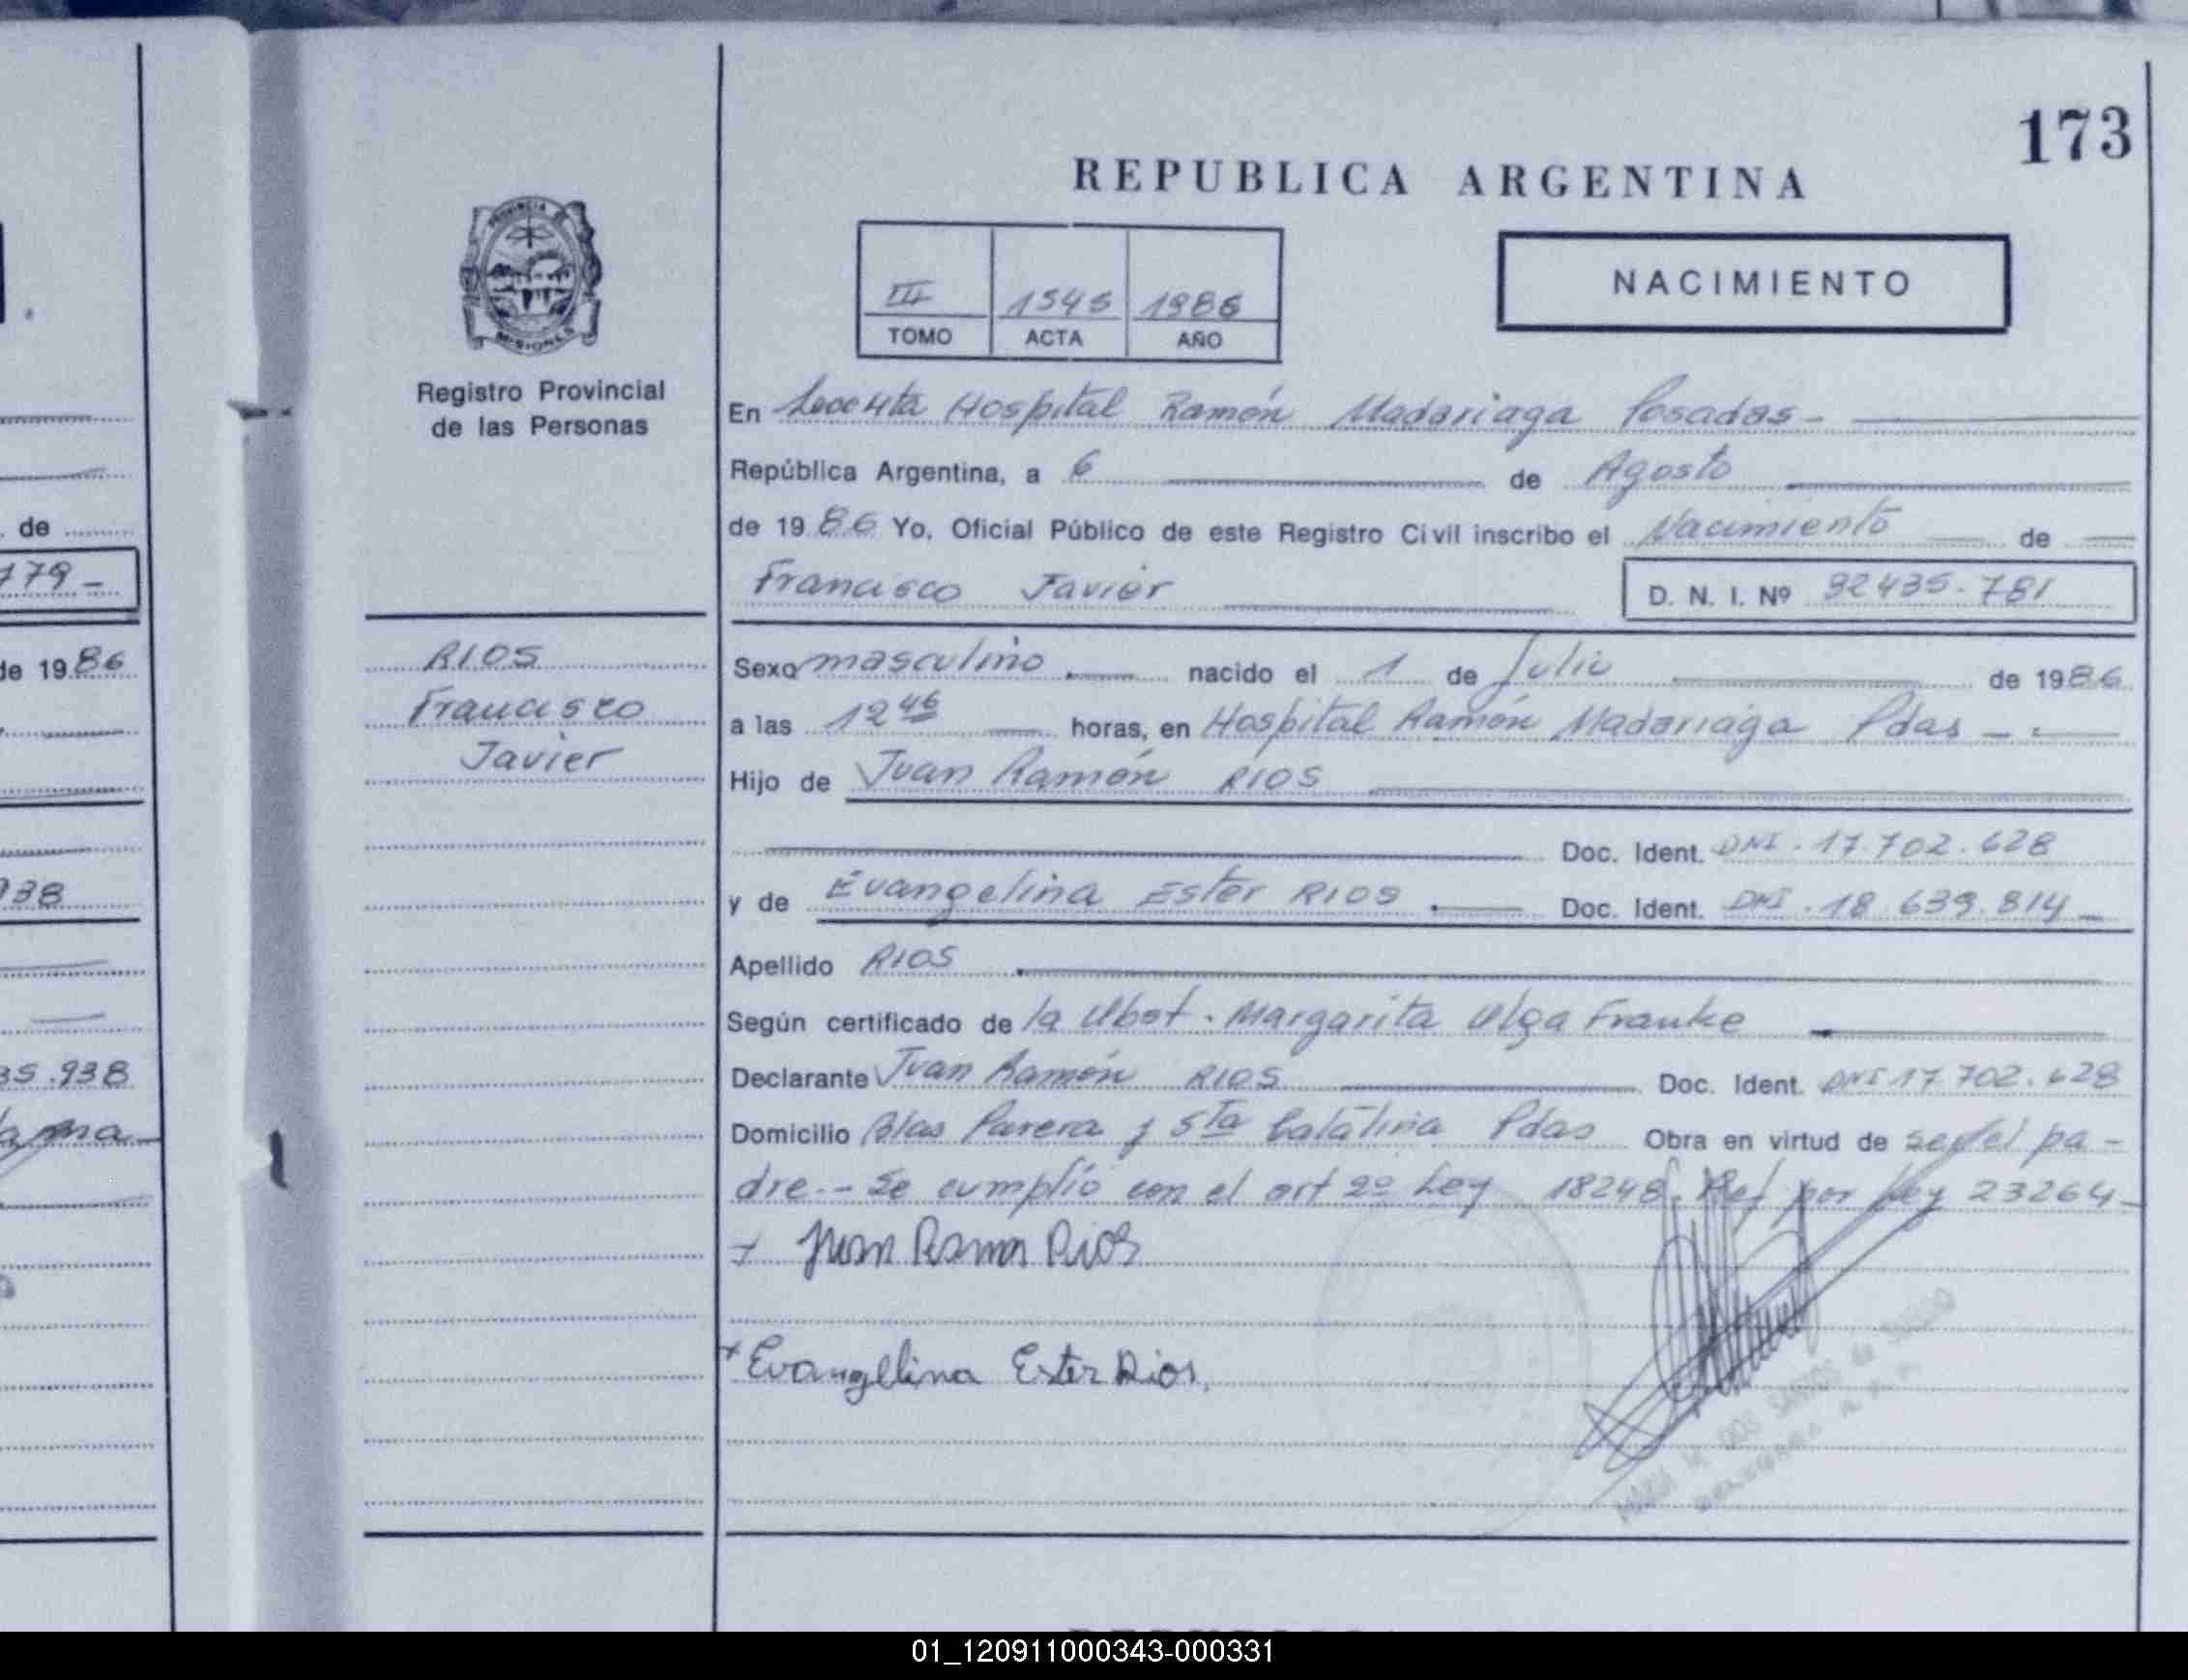 173
REPUBLICA ARGENTINA
NACIMIENTO
III 1545 1986
TOMO ACTA AÑO
PROVINCIA DE
MISIONES
Registro Provincial
de las Personas
En Hospital Ramón Madariaga Posadas -
República Argentina, a 6 de Agosto
de 1986 Yo, Oficial Público de este Registro Civil inscribo el Nacimiento de
Francisco Javier D. N. I. Nº 92435.781
RIOS
Francisco
Javier
Sexo masculino nacido el 1 de Julio de 1986
a las 12 46 horas, en Hospital Ramón Madariaga Pdas -
Hijo de Juan Ramón RIOS
Doc. Ident. DNI. 17.702.628
y de Evangelina Ester RIOS Doc. Ident. DNI. 18.639.814 -
Apellido RIOS
Según certificado de la Obst. Margarita Olga Franke
Declarante Juan Ramón RIOS Doc. Ident. DNI 17.702.628
Domicilio Blas Parera y Sta Catalina Pdas Obra en virtud de ser el pa-
dre.- Se cumplió con el art 2º Ley 18248. Ref por Ley 23264 -
+ Juan Ramon Rios
+ Evangelina Ester Rios.
de
779 -
de 1986
938
35.938
01_120911000343-000331